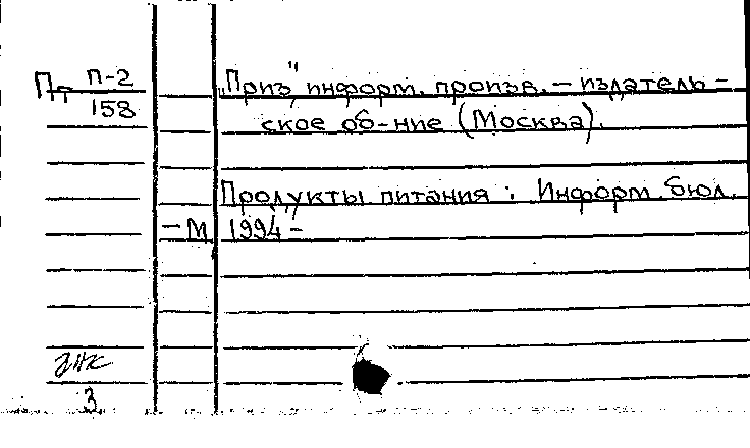 Пт П-2
158
„Приз" информ. произв. – издатель –
ское об-ние (Москва).
Продукты питания : Информ. бюл.
– М 1994 –
3